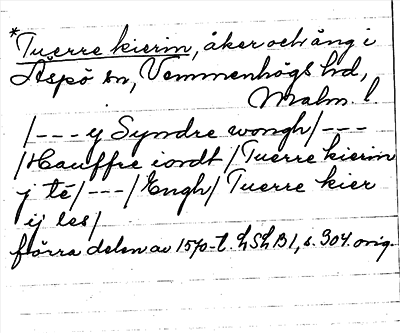 *Tuerre kierin, åker och äng i
Äspö sn, Vemmenhögs hd,
Malm. l
/--- y Syndre wongh/---
/Hauffre iordt/Tuerre kierin
j té/---/Engh/Tuerre kier
ij les/
förra delen av 1570-t. LSLB1, s. 304 orig.